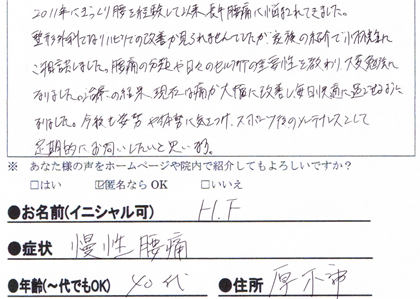 2011年にぎっくり腰を経験して以来、長年腰痛に悩まされてきました。
整形外科ではなかなかの改善が見られませんでしたが家族の紹介で小林先生に
ご相談しました。腰痛の分類や日々のセルフケアの重要性を教わり大変勉強に
なりました。治療の結果、現在は痛みが大幅に改善し毎日快適に過ごせるように
なりました。今後も姿勢や体勢に気をつけ、スポーツ後のメンテナンスとして
定期的にお伺いしたいと思います。
※ あなた様の声をホームページや院内で紹介してもよろしいですか?
□はい ☑匿名ならOK □いいえ
●お名前(イニシャル可) H.F
●症状 慢性腰痛
●年齢(~代でもOK) 40代 ●住所 厚木市